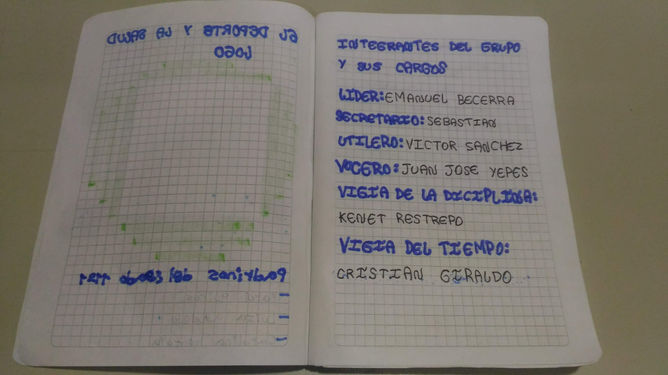 EL DEPORTE Y LA SALUD
LOGO
INTEGRANTES DEL GRUPO
Y SUS CARGOS
LIDER: EMANUEL BECERRA
SECRETARIO: SEBASTIAN
UTILERO: VICTOR SANCHEZ
VOCERO: JUAN JOSE YEPES
VIGIA DE LA DICIPLINA:
KENET RESTREPO
VIGIA DEL TIEMPO:
CRISTIAN GIRALDO